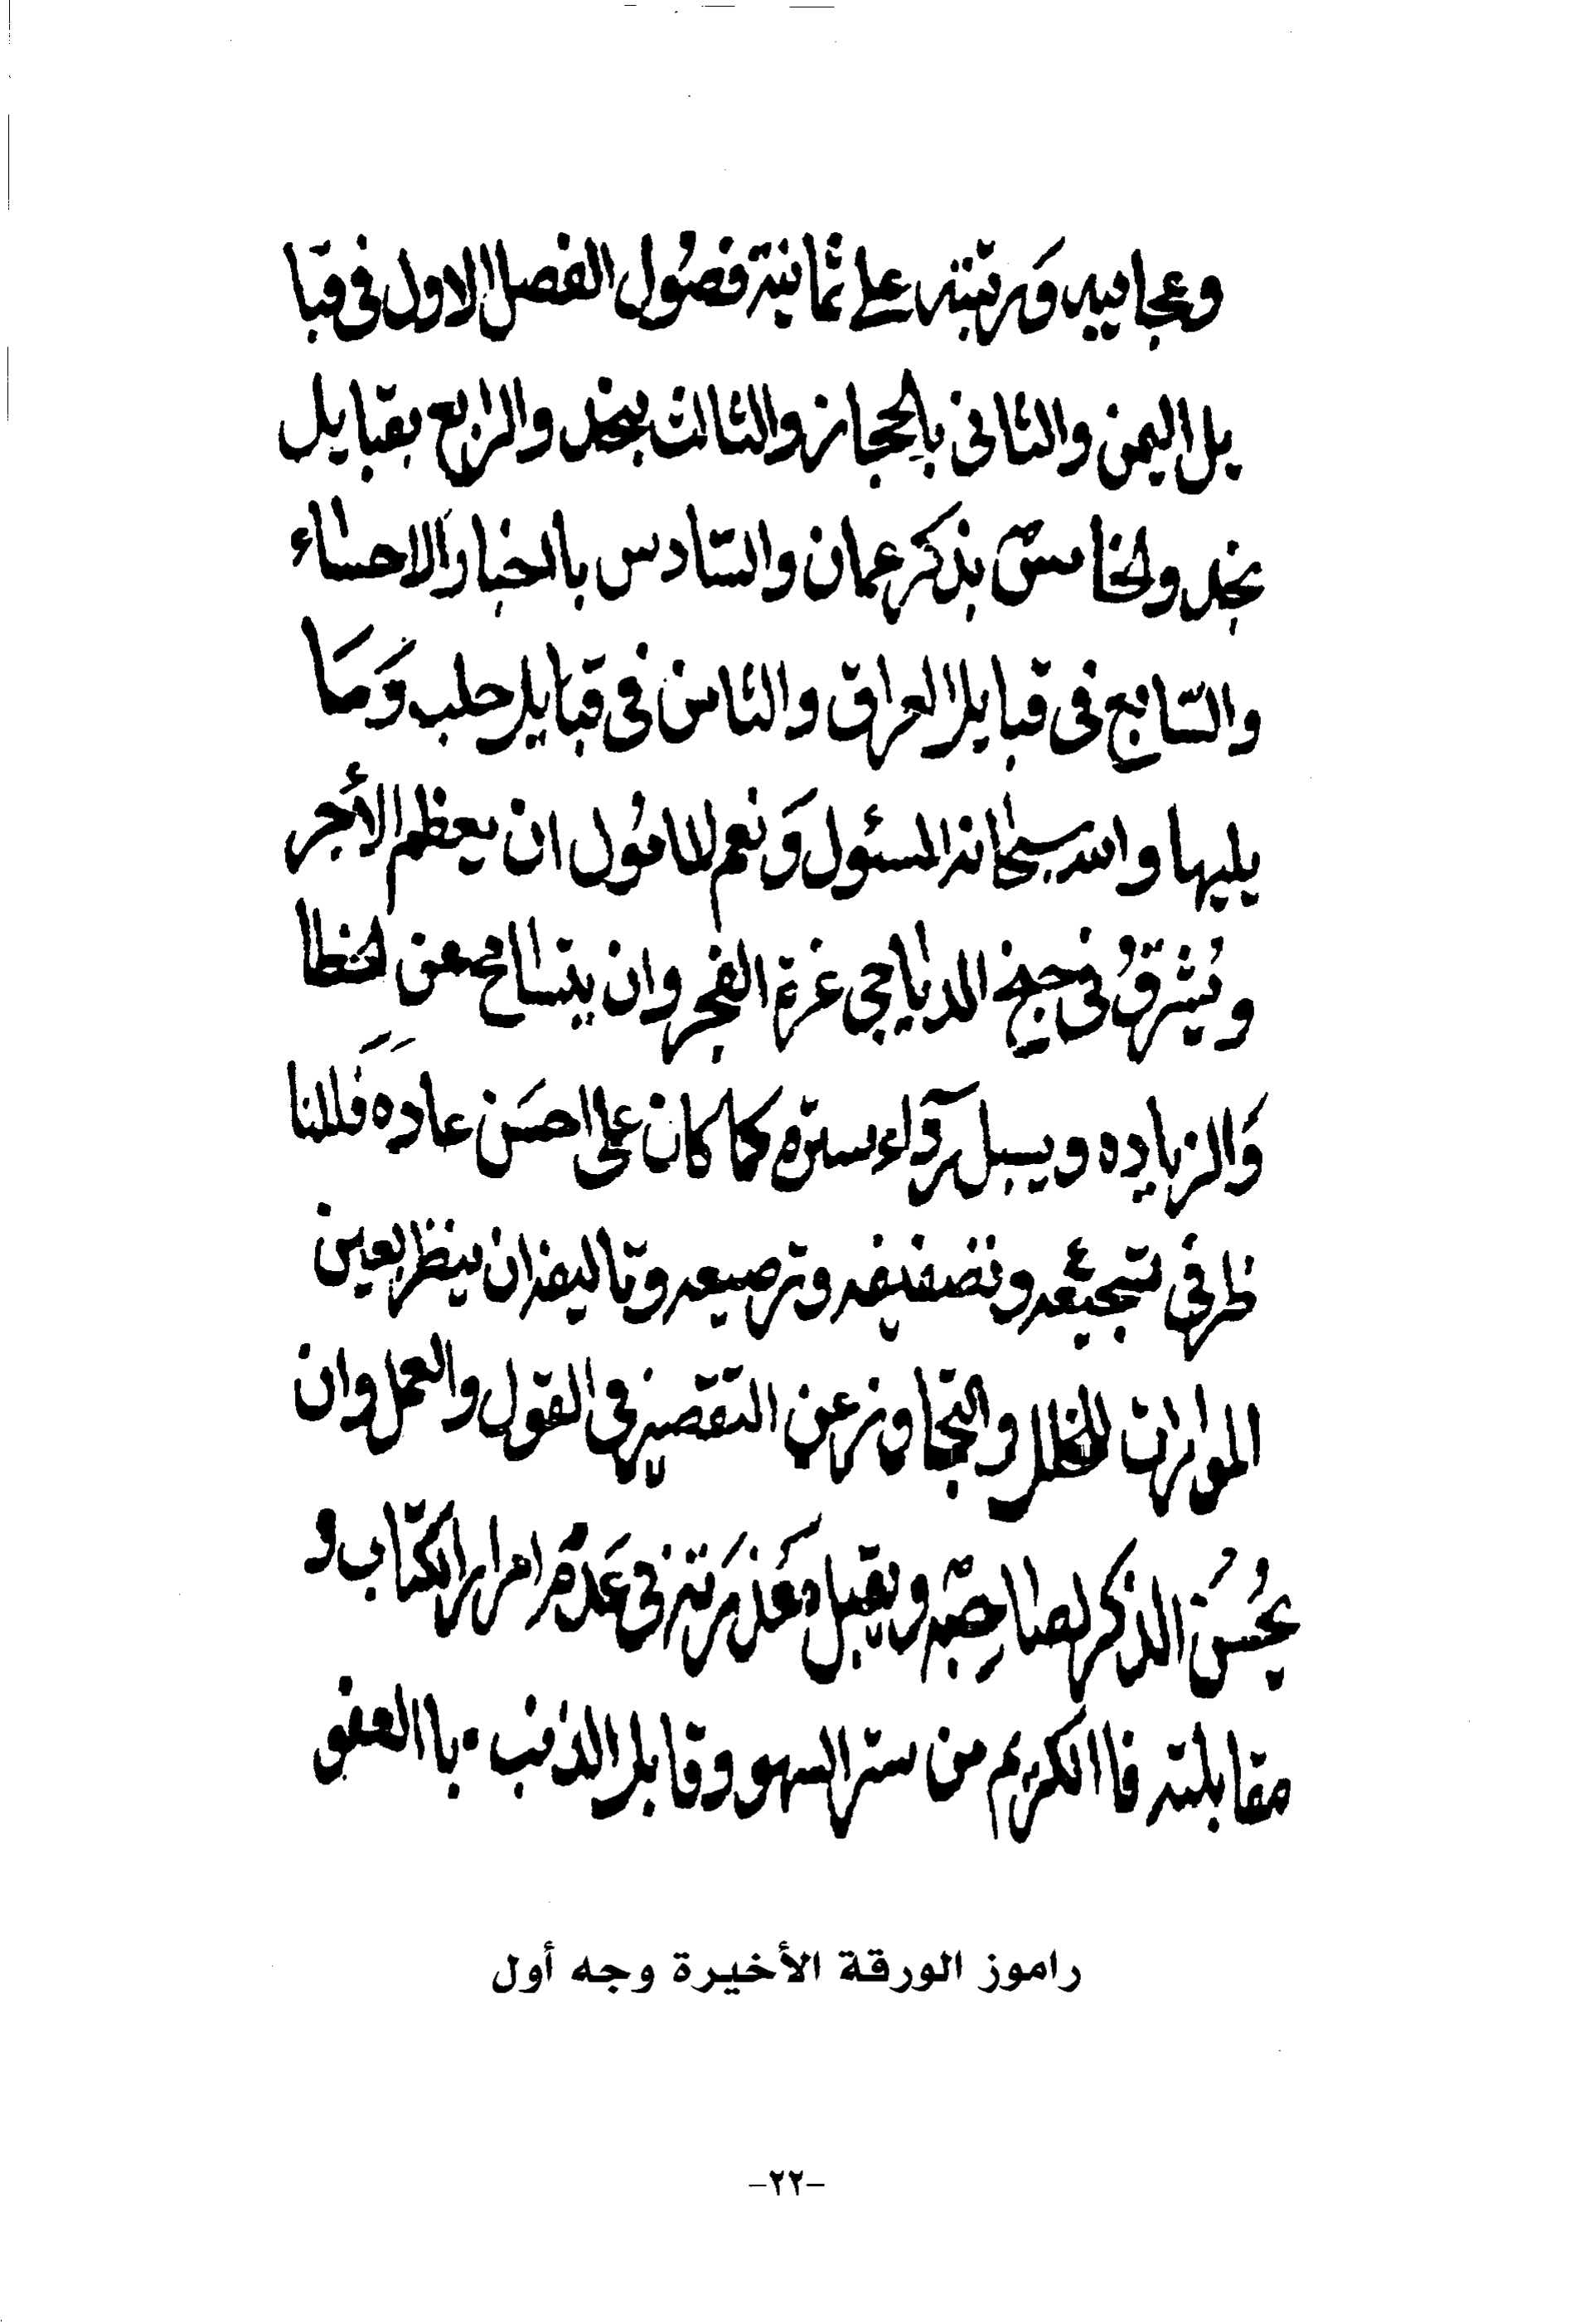 وعجايبه وَرتبته على ثمانية فصُول الفصل الاول في قبا
يل اليمن والثاني بالحجاز والثالث بنجد والرابع بقبايل
نجد والخامسّ بذكر عمان والسّادس باالخبار الاحساء
والسّابع في قبايل العراق والثامن في قبايل حلب وَمَا
يليها والله سبحانه المسئول وَنعم المامُول ان يعظم الأجر
ويُشرقُ في جنح الدياجي غرة الفجر وان يتسامح عن الخطا
وَالزياده ويسبل رِدآء ستره كما كان على احسَن عاده فَللنا
ظر في تسجيعه وتصفيفه وترصيعه وتاليفه ان ينظر بعين
الموارات للخلل والتجاوز عن التقصير في القول والعمل وان
يحُسُن الذكر لصاحِبه ويقبل مَعذرَته في عَدم امرار الكتاب و
مقابلته فاالكريم من ستر السهو وقابل الذنب باالعفو
راموز الورقة الأخيرة وجه أول
-٢٢-